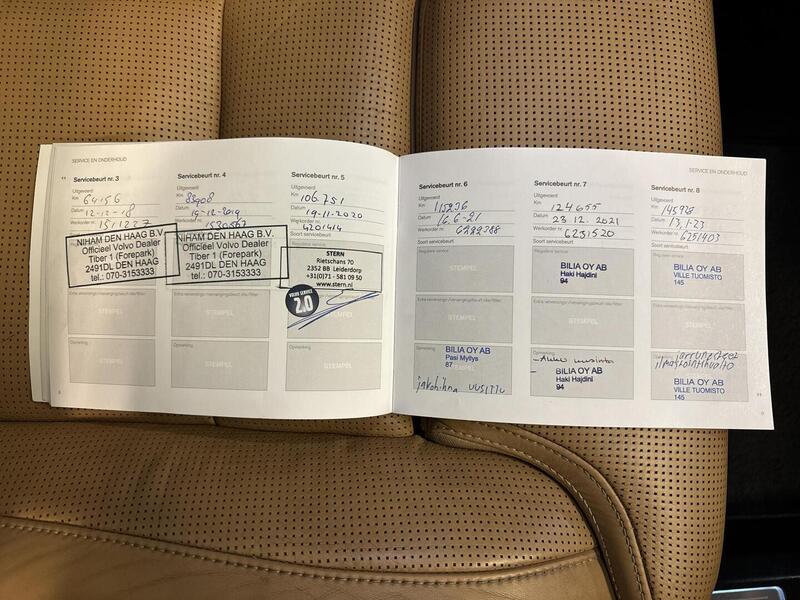 SERVICE EN ONDERHOUD
Servicebeurt nr. 3
Uitgevoerd
Km 64156
Datum 12-12-18
Werkorder nr. 1511227
NIHAM DEN HAAG B.V.
Officieel Volvo Dealer
Tiber 1 (Forepark)
2491DL DEN HAAG
tel.: 070-3153333
STEMPEL
Opmerking
STEMPEL
Servicebeurt nr. 4
Uitgevoerd
Km 83908
Datum 19-12-2019
Werkorder nr. 1530567
NIHAM DEN HAAG B.V.
Officieel Volvo Dealer
Tiber 1 (Forepark)
2491DL DEN HAAG
tel.: 070-3153333
STEMPEL
Opmerking
STEMPEL
Servicebeurt nr. 5
Uitgevoerd
Km 106.751
Datum 19-11-2020
Werkorder nr. 4201414
Soort servicebeurt
STERN
Rietschans 70
2352 BB Leiderdorp
+31(0)71 - 581 09 50
www.stern.nl
VOLVO SERVICE
2.0
STEMPEL
Opmerking
STEMPEL
8
SERVICE EN ONDERHOUD
Servicebeurt nr. 6
Uitgevoerd
Km 115236
Datum 16.6-21
Werkorder nr.
Soort servicebeurt
Reguliere service
STEMPEL
STEMPEL
Opmerking
BILIA OY AB
Pasi Myllys
87
STEMPEL
jakohihna uusittu
Servicebeurt nr. 7
Uitgevoerd
Km 124655
Datum 23.12.2021
Werkorder nr. 6231520
Soort servicebeurt
Reguliere service
BILIA OY AB
Haki Hajdini
94
STEMPEL
Opmerking
- Akku uusinta
BILIA OY AB
Haki Hajdini
94
Servicebeurt nr. 8
Uitgevoerd
Km 145928
Datum 13.1-23
Werkorder nr. 6251403
Soort servicebeurt
Reguliere service
BILIA OY AB
VILLE TUOMISTO
145
STEMPEL
Opmerking
ilmastointihuolto
BILIA OY AB
VILLE TUOMISTO
145
9